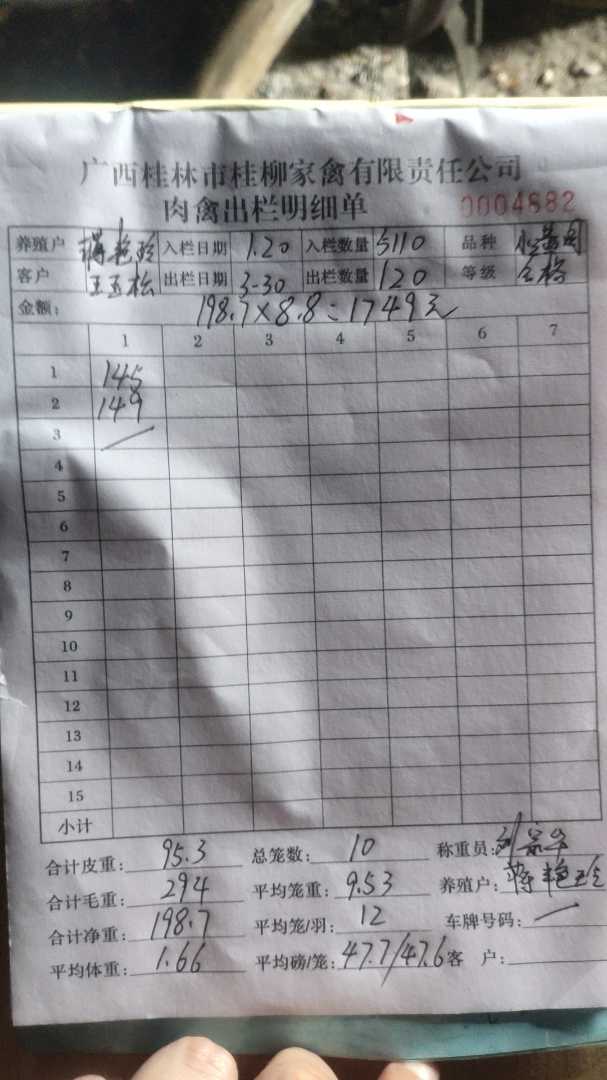 广西桂林市桂柳家禽有限责任公司
肉禽出栏明细单 0004882
养殖户 蒋艳珍 入栏日期 1.20 入栏数量 5110 品种
客户 王五松 出栏日期 3-30 出栏数量 120 等级 合格
金额: 198.7×8.8=1749元
1 2 3 4 5 6 7
1 145
2 149
3
4
5
6
7
8
9
10
11
12
13
14
15
小计
合计皮重: 95.3 总笼数: 10 称重员:
合计毛重: 294 平均笼重: 9.53 养殖户: 蒋艳珍
合计净重: 198.7 平均笼/羽: 12 车牌号码:
平均体重: 1.66 平均磅/笼: 47.7/47.6 客 户: